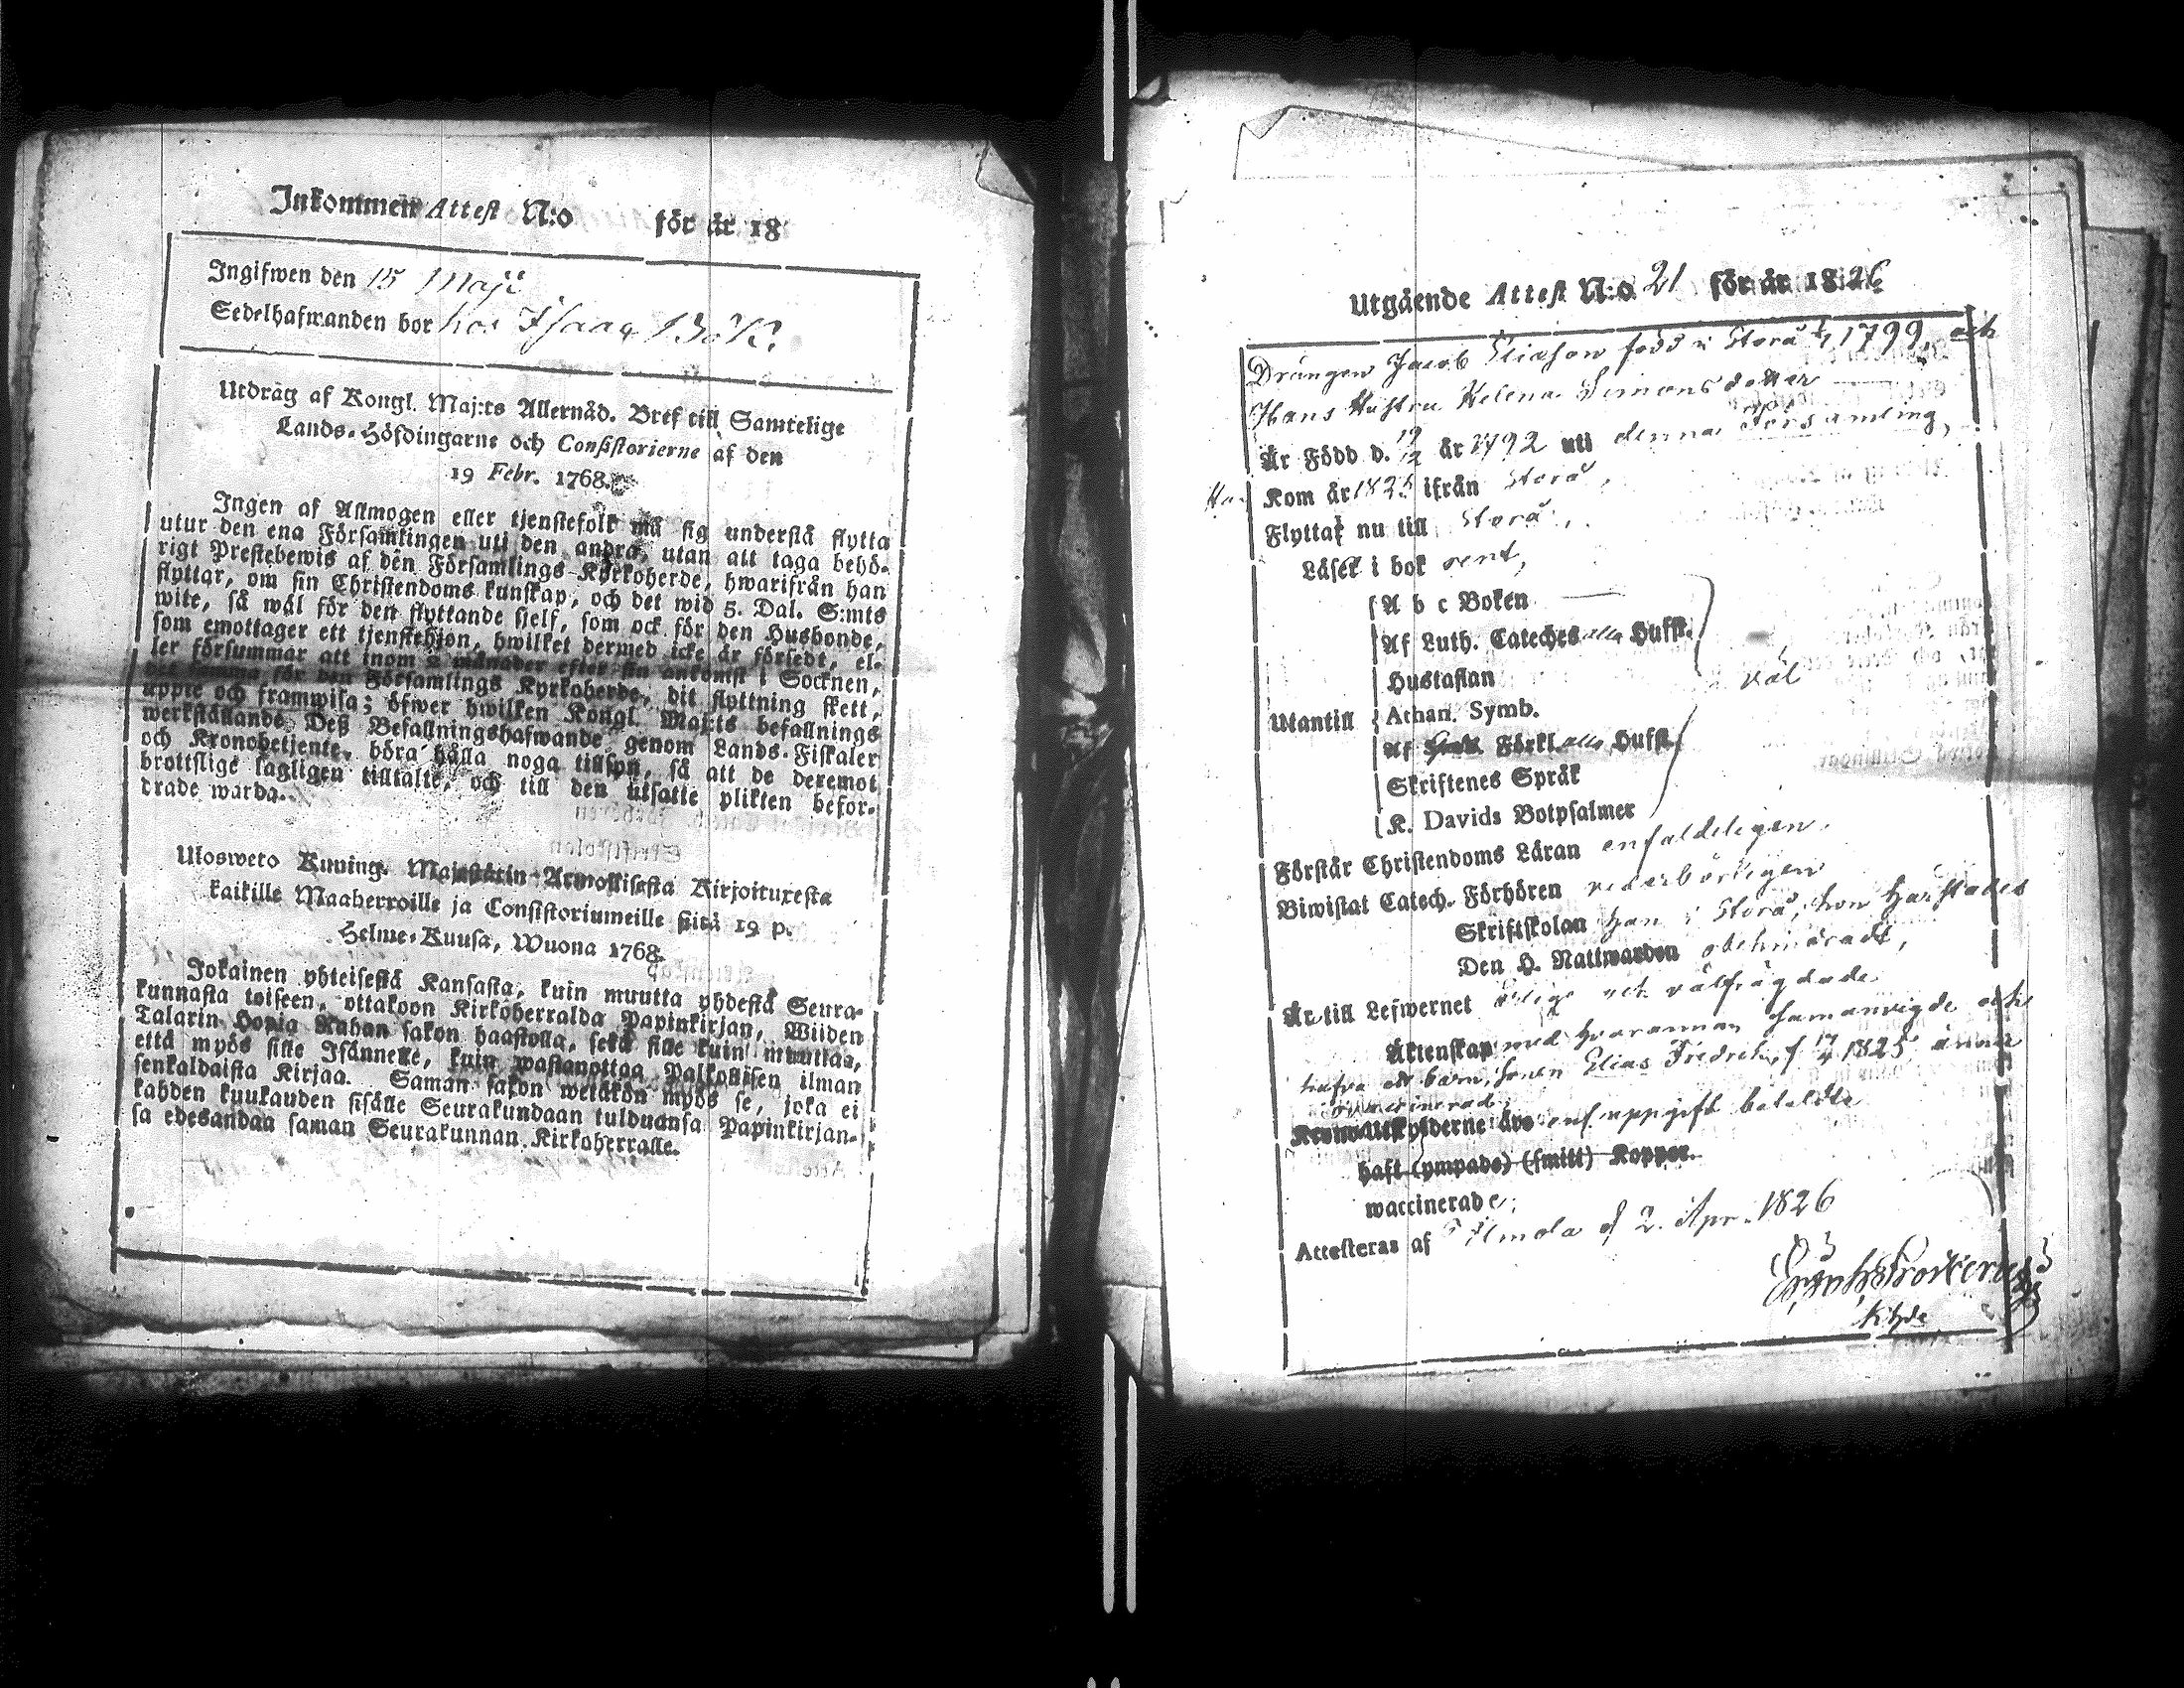 Inkommen Attest N:o för år 18
Ingifwen den 15 Maji
Sedelhafwanden bor hos Isaac Böhl.
Utdrag af Kongl. Maj:ts Allernåd. Bref till Samtelige
Lands-Höfdingarne och Consistorierne af den
19 Febr. 1768.
Ingen af Allmogen eller tjenstefolk må sig understå flytta
utur den ena Församlingen uti den andra, utan att taga behö-
rigt Prestebewis af den Församlings Kyrkoherde, hwarifrån han
flyttar, om sin Christendoms kunskap, och det wid 5. Dal. S:mts
wite, så wäl för den flyttande sjelf, som ock för den Husbonde,
som emottager ett tjenstehjon, hwilket dermed icke är försedt, el-
ler försummar att inom 2 månader efter sin ankomst i Socknen,
det samma för den Församlings Kyrkoherde, dit flyttning skett,
uppte och framwisa; öfwer hwilken Kongl. Maj:ts befallnings
werkställande Deß Befallningshafwande genom Lands-Fiskaler
och Kronobetjente, böra hålla noga tillsyn, så att de deremot
brottslige lagligen tilltalte, och till den utsatte plikten befor-
drade warda.
Ulosweto Kuning. Majestätin Armollisesta Kirjoituxesta
kaikille Maaherroille ja Consistoriumeille siitä 19 p.
Helme-Kuusa, Wuona 1768.
Jokainen yhteisestä Kansasta, kuin muutta yhdestä Seura-
kunnasta toiseen, ottakoon Kirkoherralda Papinkirjan, Wiiden
Talarin Hopia Rahan sakon haastolla, sekä sille kuin muuttaa,
että myös sille Isännelle, kuin wastanottaa Palkollisen ilman
senkaldaista Kirjaa. Saman sakon wetäkön myös se, joka ei
kahden kuukauden sisälle Seurakundaan tulduansa Papinkirjan-
sa edesandaa saman Seurakunnan Kirkoherralle.
Utgående Attest N:o 21 för år 1826
Drängen Jacob Eliasson född i Storå 1799, och
Hans Hustru Helena Simonsdotter
Är Född d. 19/12 år 1792 uti denna Församling,
Kom år 1825 ifrån Storå,
Flyttar nu till Storå,
Läser i bok rent,
A b c Boken
Af Luth. Cateches alla Hufst.
Hustaflan
väl
Utantill
Athan. Symb.
Af Förkl. alla Hufst.
Skriftenes Språk
K. Davids Botpsalmer
Förstår Christendoms Läran enfaldeligen.
Biwistat Catech. Förhören vederbörligen
Skriftskolan han i Storå, hon härstädes
Den H. Nattwarden oklandradt,
Är till Lefwernet ärlige och välfrägdade
Äktenskap med hvarannan samanvigde och
hafva ett barn, sonen Elias Fredrik, f. 17/4 1825, ännu
ovaccinerad.
Krono Utskylderne äro enl. uppgift betalda
haft (ympade) (smitt) Koppor.
waccinerade,
Attesteras af Ilmola d. 2. Apr. 1826